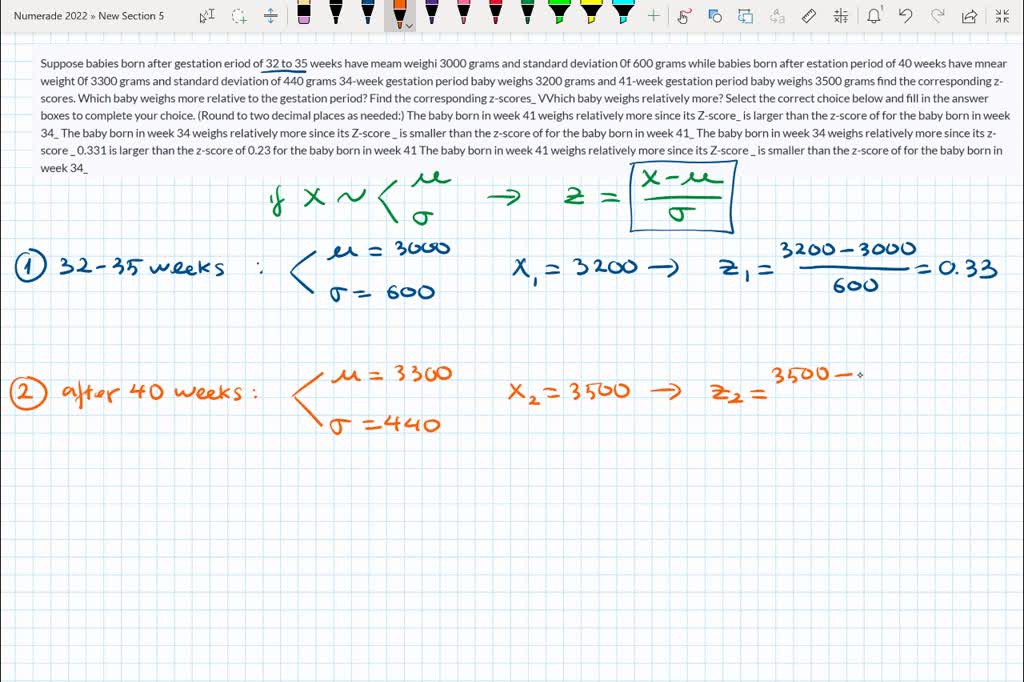 Numerade 2022 » New Section 5
Suppose babies born after gestation eriod of 32 to 35 weeks have meam weighi 3000 grams and standard deviation 0f 600 grams while babies born after estation period of 40 weeks have mnear
weight 0f 3300 grams and standard deviation of 440 grams 34-week gestation period baby weighs 3200 grams and 41-week gestation period baby weighs 3500 grams fınd the corresponding z-
scores. Which baby weighs more relative to the gestation period? Find the corresponding z-scores_ VVhich baby weighs relatively more? Select the correct choice below and fill in the answer
boxes to complete your choice. (Round to two decimal places as needed:) The baby born in week 41 weighs relatively more since its Z-score_ is larger than the z-score of for the baby born in week
34_ The baby born in week 34 weighs relatively more since its Z-score _ is smaller than the z-score of for the baby born in week 41_ The baby born in week 34 weighs relatively more since its z-
score _ 0.331 is larger than the z-score of 0.23 for the baby born in week 41 The baby born in week 41 weighs relatively more since its Z-score _ is smaller than the z-score of for the baby born in
week 34_
if X ~ < μ σ → z = x - μ / σ
① 32-35 weeks : < μ = 3000 σ = 600 x₁ = 3200 → z₁ = 3200 - 3000 / 600 = 0.33
② after 40 weeks : < μ = 3300 σ = 440 x₂ = 3500 → z₂ = 3500 -